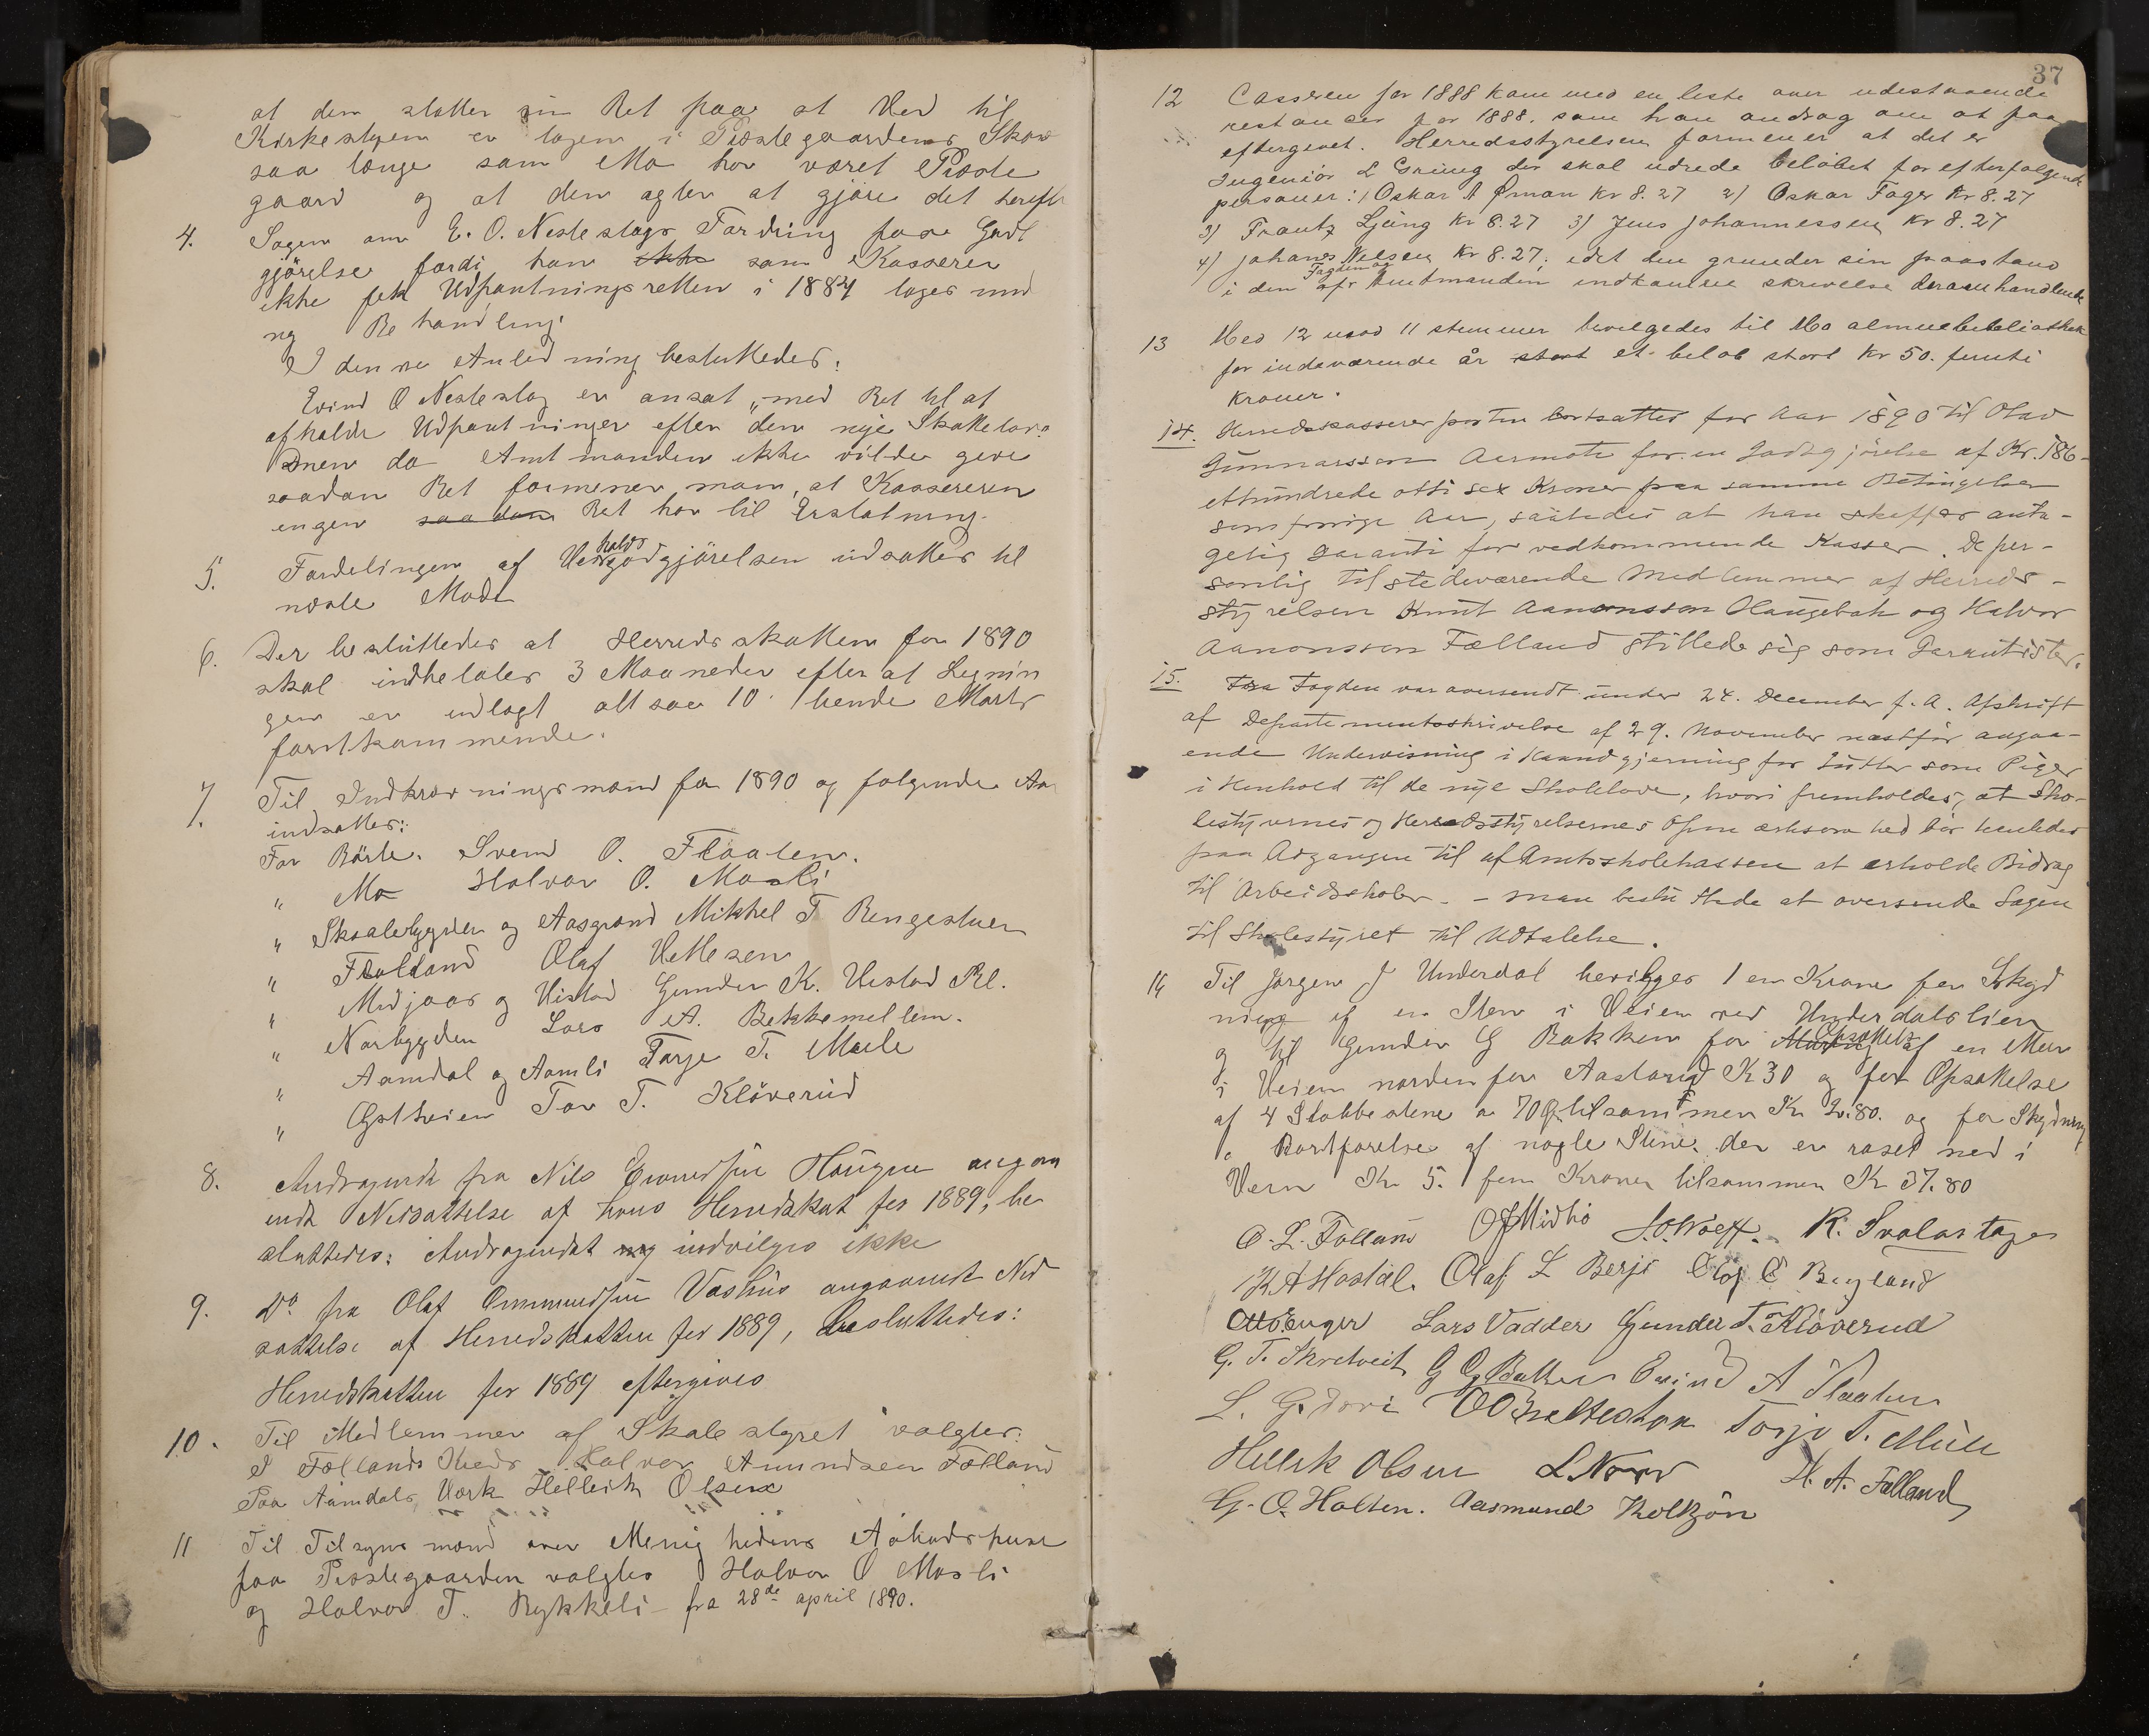 at den støtter sin Ret paa at Ved til
Kirkestuen er tagen i Præstegaardens Skov
saa længe som Mo har været Præste
gaard og at den agter at gjøre det herefter
4. Sagen om E. O. Nesleslags Fordring paa Godt
gjörelse fordi han ikke som Kasserer
ikke fik Udpantningsretten i 1884 toges under
ny Behandling.
I denne Anledning besluttedes:
Evind O Nesleslag er ansat "med Ret til at
afholde Udpantninger efter den nye Skattelov"
men da Amtmanden ikke vilde give
saadan Ret formener man, at Kassereren
ingen saadan Ret har til Erstatning.
5. Fordelingen af Veiholdsgodtgjörelsen udsattes til
næste Möde
6. Der besluttedes at Herredsskatten for 1890
skal indbetales 3 Maaneder efter at Lignin
gen er udlagt altsaa 10 tiende Marts
förstkommende.
7. Til Indkrævningsmænd for 1890 og følgende Aar
indsattes:
For Börte. Svend O. Flaaten.
" Mo Halvor O. Mosli
" Skaalebygden og Aasgrand Mikkel T Rengestuen
" Folland Olaf Vettesen
" Midjaas og Vistad Gunder K. Vistad Bl.
" Norbygden Lars A. Bekkemellem.
" Aamdal og Aamli Tarje T. Mule
" Østheien Tov T. Klöverud
8. Andragende fra Nils Eivindsön Haugen angaa
ende Nedsættelse af hans Herredskat for 1889, be
sluttedes: Andragendet indvilges ikke
9. Do fra Olaf Ommundsön Vashus angaaende Ned
sættelse af Herredskatten for 1889, besluttedes:
Herredskatten for 1889 eftergives
10. Til Medlemmer af Skolestyret valgtes:
I Follands Kreds Halvor Amundsen Folland
Paa Aamdals Værk Helleik Olsen
11 Til Tilsynsmænd over Menighedens Aabodshuse
paa Præstegaarden valgtes Halvor O Mosli
og Halvor T. Rykkeli fra 28de april 1890.
37
12 Cassereren for 1888 kom med en liste over udestaaende
restancer for 1888. som han androg om at faa
eftergivet. Herredsstyrelsen formener at det er
Ingeniör L Gring der skal udrede belöbet for efterfølgende
personer: 1) Oskar A Öman Kr 8.27 2) Oskar Fager Kr 8.27
3) Frantz Ljung Kr 8.27 3) Jens Johannessen Kr 8.27
4) Johans Nelsen Kr 8.27; idet den grunder sin paastand
i den af Fogden og Amtmanden indkomne skrivelse deromhandlende
13 Med 12 mod 11 stemmer bevilgedes til Mo almuebibliothek
for indeværende år stort et belöb stort Kr 50. femti
kroner.
14. Herredskassererposten bortsattes for Aar 1890 til Olav
Gunnarsson Aarmote for en Godtgjörelse af Kr. 186-
ethundrede otti sex Kroner paa samme Betingelser
som forrige Aar, saaledes at han skaffer anta-
gelig Garanti for vedkommende Kasser. De per-
sonlig tilstedeværende Medlemmer af Herreds-
styrelsen Knut Aanonsson Haugebak og Halvor
Aanonsson Fælland stillede sig som Garantister.
15. Fra Fogden var oversendt under 24. December f. A. Afskrift
af Departementsskrivelse af 29. November næstför angaa-
ende Undervisning i Haandgjerning for Gutter som Piger
i Henhold til de nye Skolelove, hvori fremholdes, at Sko-
lestyrernes og Herredsstyrelsernes Opmærksomhed bör henledes
paa Adgangen til af Amtsskolekassen at erholde Bidrag
til Arbeidsskoler. - man besluttede at oversende Sagen
til Skolestyret til Udtalelse.
16 Til Jørgen J Underdal bevilges 1 en Krone for Skyd
ning af en Sten i Veien ved Underdalslien
og til Gunder G Bakken for Muring Opsættelse af en Mur
i Veien nordenfor Aastarud K 30 og for Opsættelse
af 4 Stabbestene a 70 Ø tilsammen Kr 2.80. og for Skydning
o. Bortførelse af nogle Stene der er raset ned i
Veien Kr 5. fem Kroner tilsammen Kr 37.80
O. L. Folland O J Midbö S. O. Wolff. K. Svalastoga
K A Hastal. Olaf L Berge Olaf O Bergland
Otto Enger Lars Vadder Gunder T. Klöverud
G. T. Skretveit G G Bakken Evind A Flaaten
L. G. Dovi Torje T. Mule
Hellek Olsen L. Nord H. A. Folland
G. O. Holten. Aasmund Kolbjön